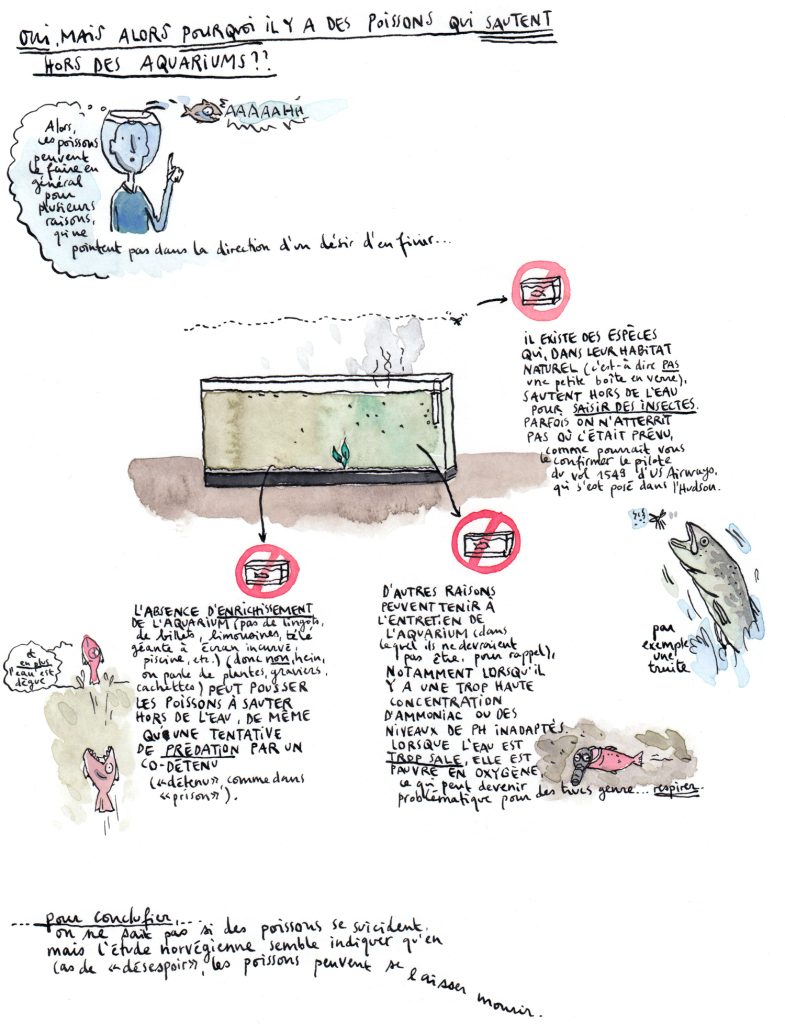 OUI, MAIS ALORS POURQUOI IL Y A DES POISSONS QUI SAUTENT
HORS DES AQUARIUMS??
AAAAAHH
Alors,
ces poissons
peuvent
le faire en
général
pour
plusieurs
raisons,
qui ne
pointent pas dans la direction d'un désir d'en finir...
IL EXISTE DES ESPÈCES
QUI, DANS LEUR HABITAT
NATUREL (c'est-à dire PAS
une petite boîte en verre),
SAUTENT HORS DE L'EAU
POUR SAISIR DES INSECTES.
PARFOIS ON N'ATTERRIT
PAS OÙ C'ÉTAIT PRÉVU,
comme pourrait vous
le confirmer le pilote
du vol 1549 d'US Airways,
qui s'est posé dans l'Hudson.
par
exemple
une
truite
L'ABSENCE D'ENRICHISSEMENT
DE L'AQUARIUM (pas de lingots,
de billets, limousines, télé
géante à écran incurvé,
piscine, etc.) (donc non, hein,
on parle de plantes, graviers,
cachettes) PEUT POUSSER
LES POISSONS À SAUTER
HORS DE L'EAU, DE MÊME
QU'UNE TENTATIVE
DE PRÉDATION PAR UN
CO-DÉTENU
(«détenu», comme dans
«prison»).
et
en plus
l'eau est
dégueu
D'AUTRES RAISONS
PEUVENT TENIR À
L'ENTRETIEN DE
L'AQUARIUM (dans
lequel ils ne devraient
pas être, pour rappel),
NOTAMMENT LORSQU'IL
Y A UNE TROP HAUTE
CONCENTRATION
D'AMMONIAC OU DES
NIVEAUX DE PH INADAPTÉS
LORSQUE L'EAU EST
TROP SALE, ELLE EST
PAUVRE EN OXYGÈNE,
ce qui peut devenir
problématique pour des trucs genre... respirer.
...pour conclufier,...
on ne sait pas si des poissons se suicident.
mais l'étude norvégienne semble indiquer qu'en
cas de «désespoir», les poissons peuvent se laisser mourir.